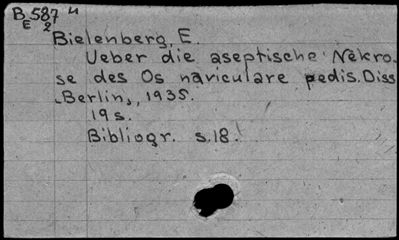 B 587 u
E 2
Bielenberg, E.
Ueber die aseptische Nekro-
se des Os naviculare pedis. Diss
Berlin, 1935.
19 s.
Bibliogr. s.18.